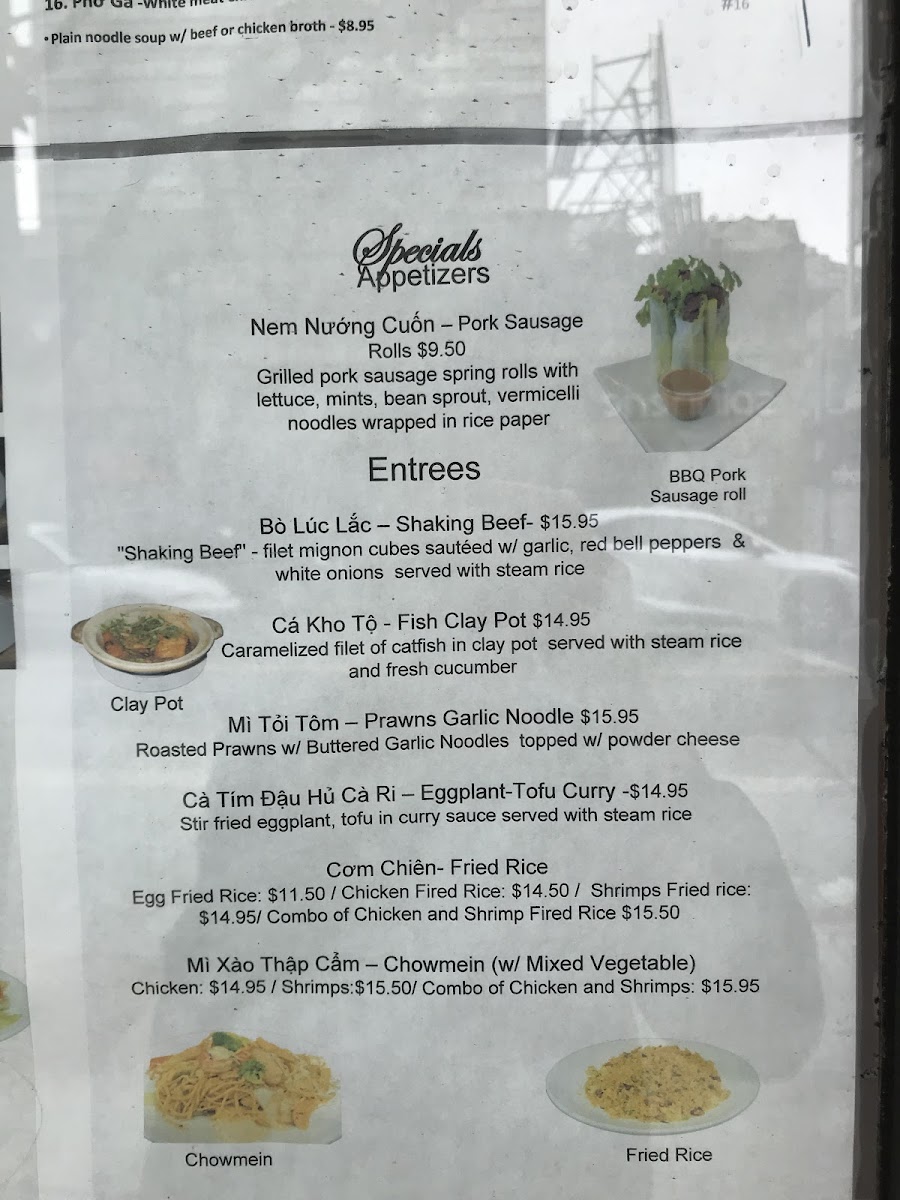 16. Phở Gà -White meat
#16
•Plain noodle soup w/ beef or chicken broth - $8.95
Specials
Appetizers
Nem Nướng Cuốn – Pork Sausage
Rolls $9.50
Grilled pork sausage spring rolls with
lettuce, mints, bean sprout, vermicelli
noodles wrapped in rice paper
BBQ Pork
Sausage roll
Entrees
Bò Lúc Lắc – Shaking Beef- $15.95
"Shaking Beef" - filet mignon cubes sautéed w/ garlic, red bell peppers &
white onions served with steam rice
Cá Kho Tộ - Fish Clay Pot $14.95
Caramelized filet of catfish in clay pot served with steam rice
and fresh cucumber
Clay Pot
Mì Tỏi Tôm – Prawns Garlic Noodle $15.95
Roasted Prawns w/ Buttered Garlic Noodles topped w/ powder cheese
Cà Tím Đậu Hủ Cà Ri – Eggplant-Tofu Curry -$14.95
Stir fried eggplant, tofu in curry sauce served with steam rice
Cơm Chiên- Fried Rice
Egg Fried Rice: $11.50 / Chicken Fired Rice: $14.50 / Shrimps Fried rice:
$14.95/ Combo of Chicken and Shrimp Fired Rice $15.50
Mì Xào Thập Cẩm – Chowmein (w/ Mixed Vegetable)
Chicken: $14.95 / Shrimps:$15.50/ Combo of Chicken and Shrimps: $15.95
Chowmein
Fried Rice